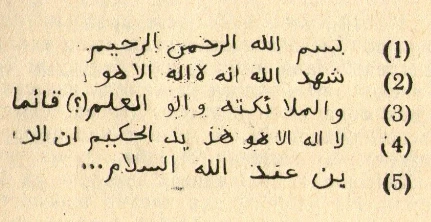 (1) بسم الله الرحمن الرحيم
(2) شهد الله انه لا اله الا هو
(3) والملا ئكته والو العلم (؟) قائما
(4) لا اله الا هو هذ يد الحكيم ان الد
(5) ين عند الله السلام...